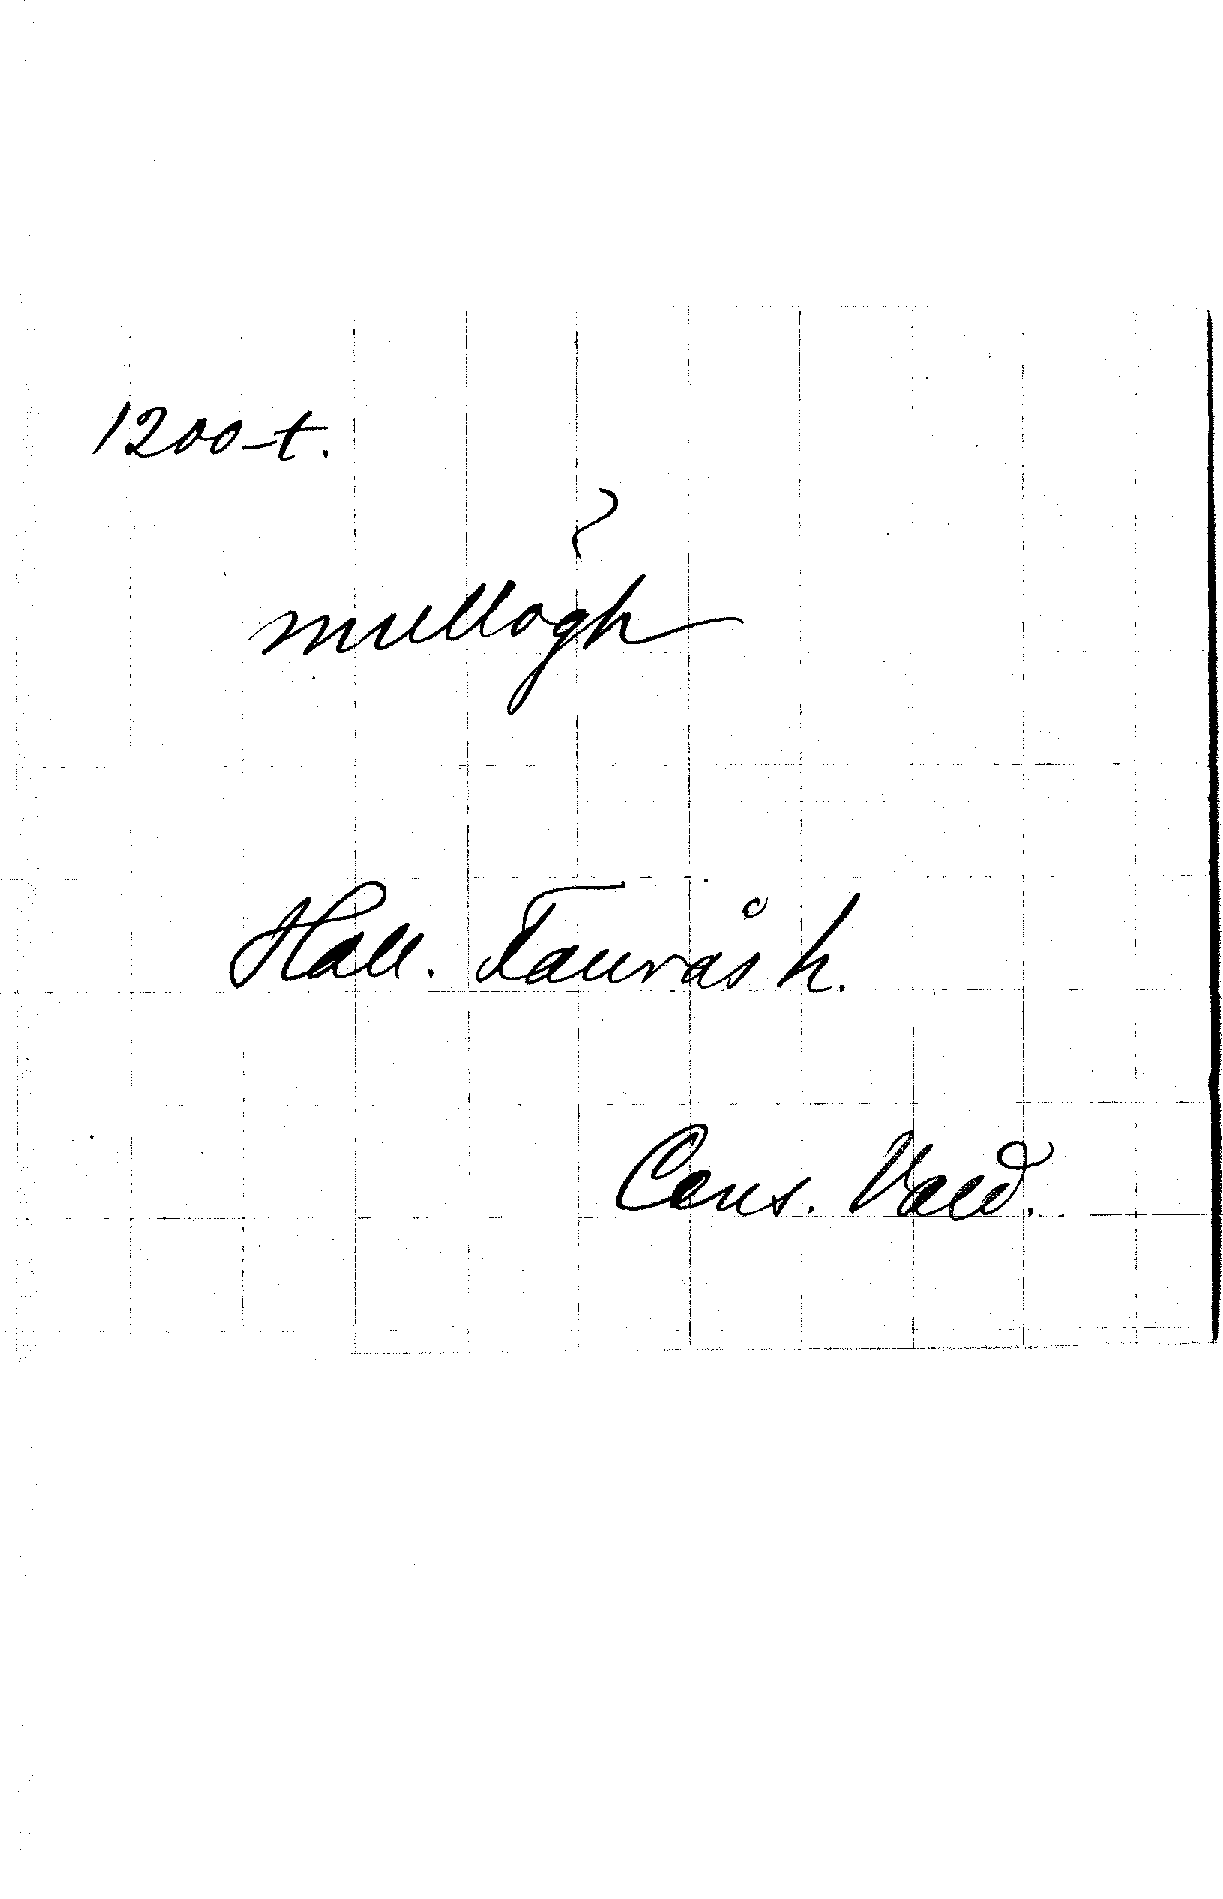 1200-t.
mullogh
Hall. Tauråsh.
Cens. Vald.